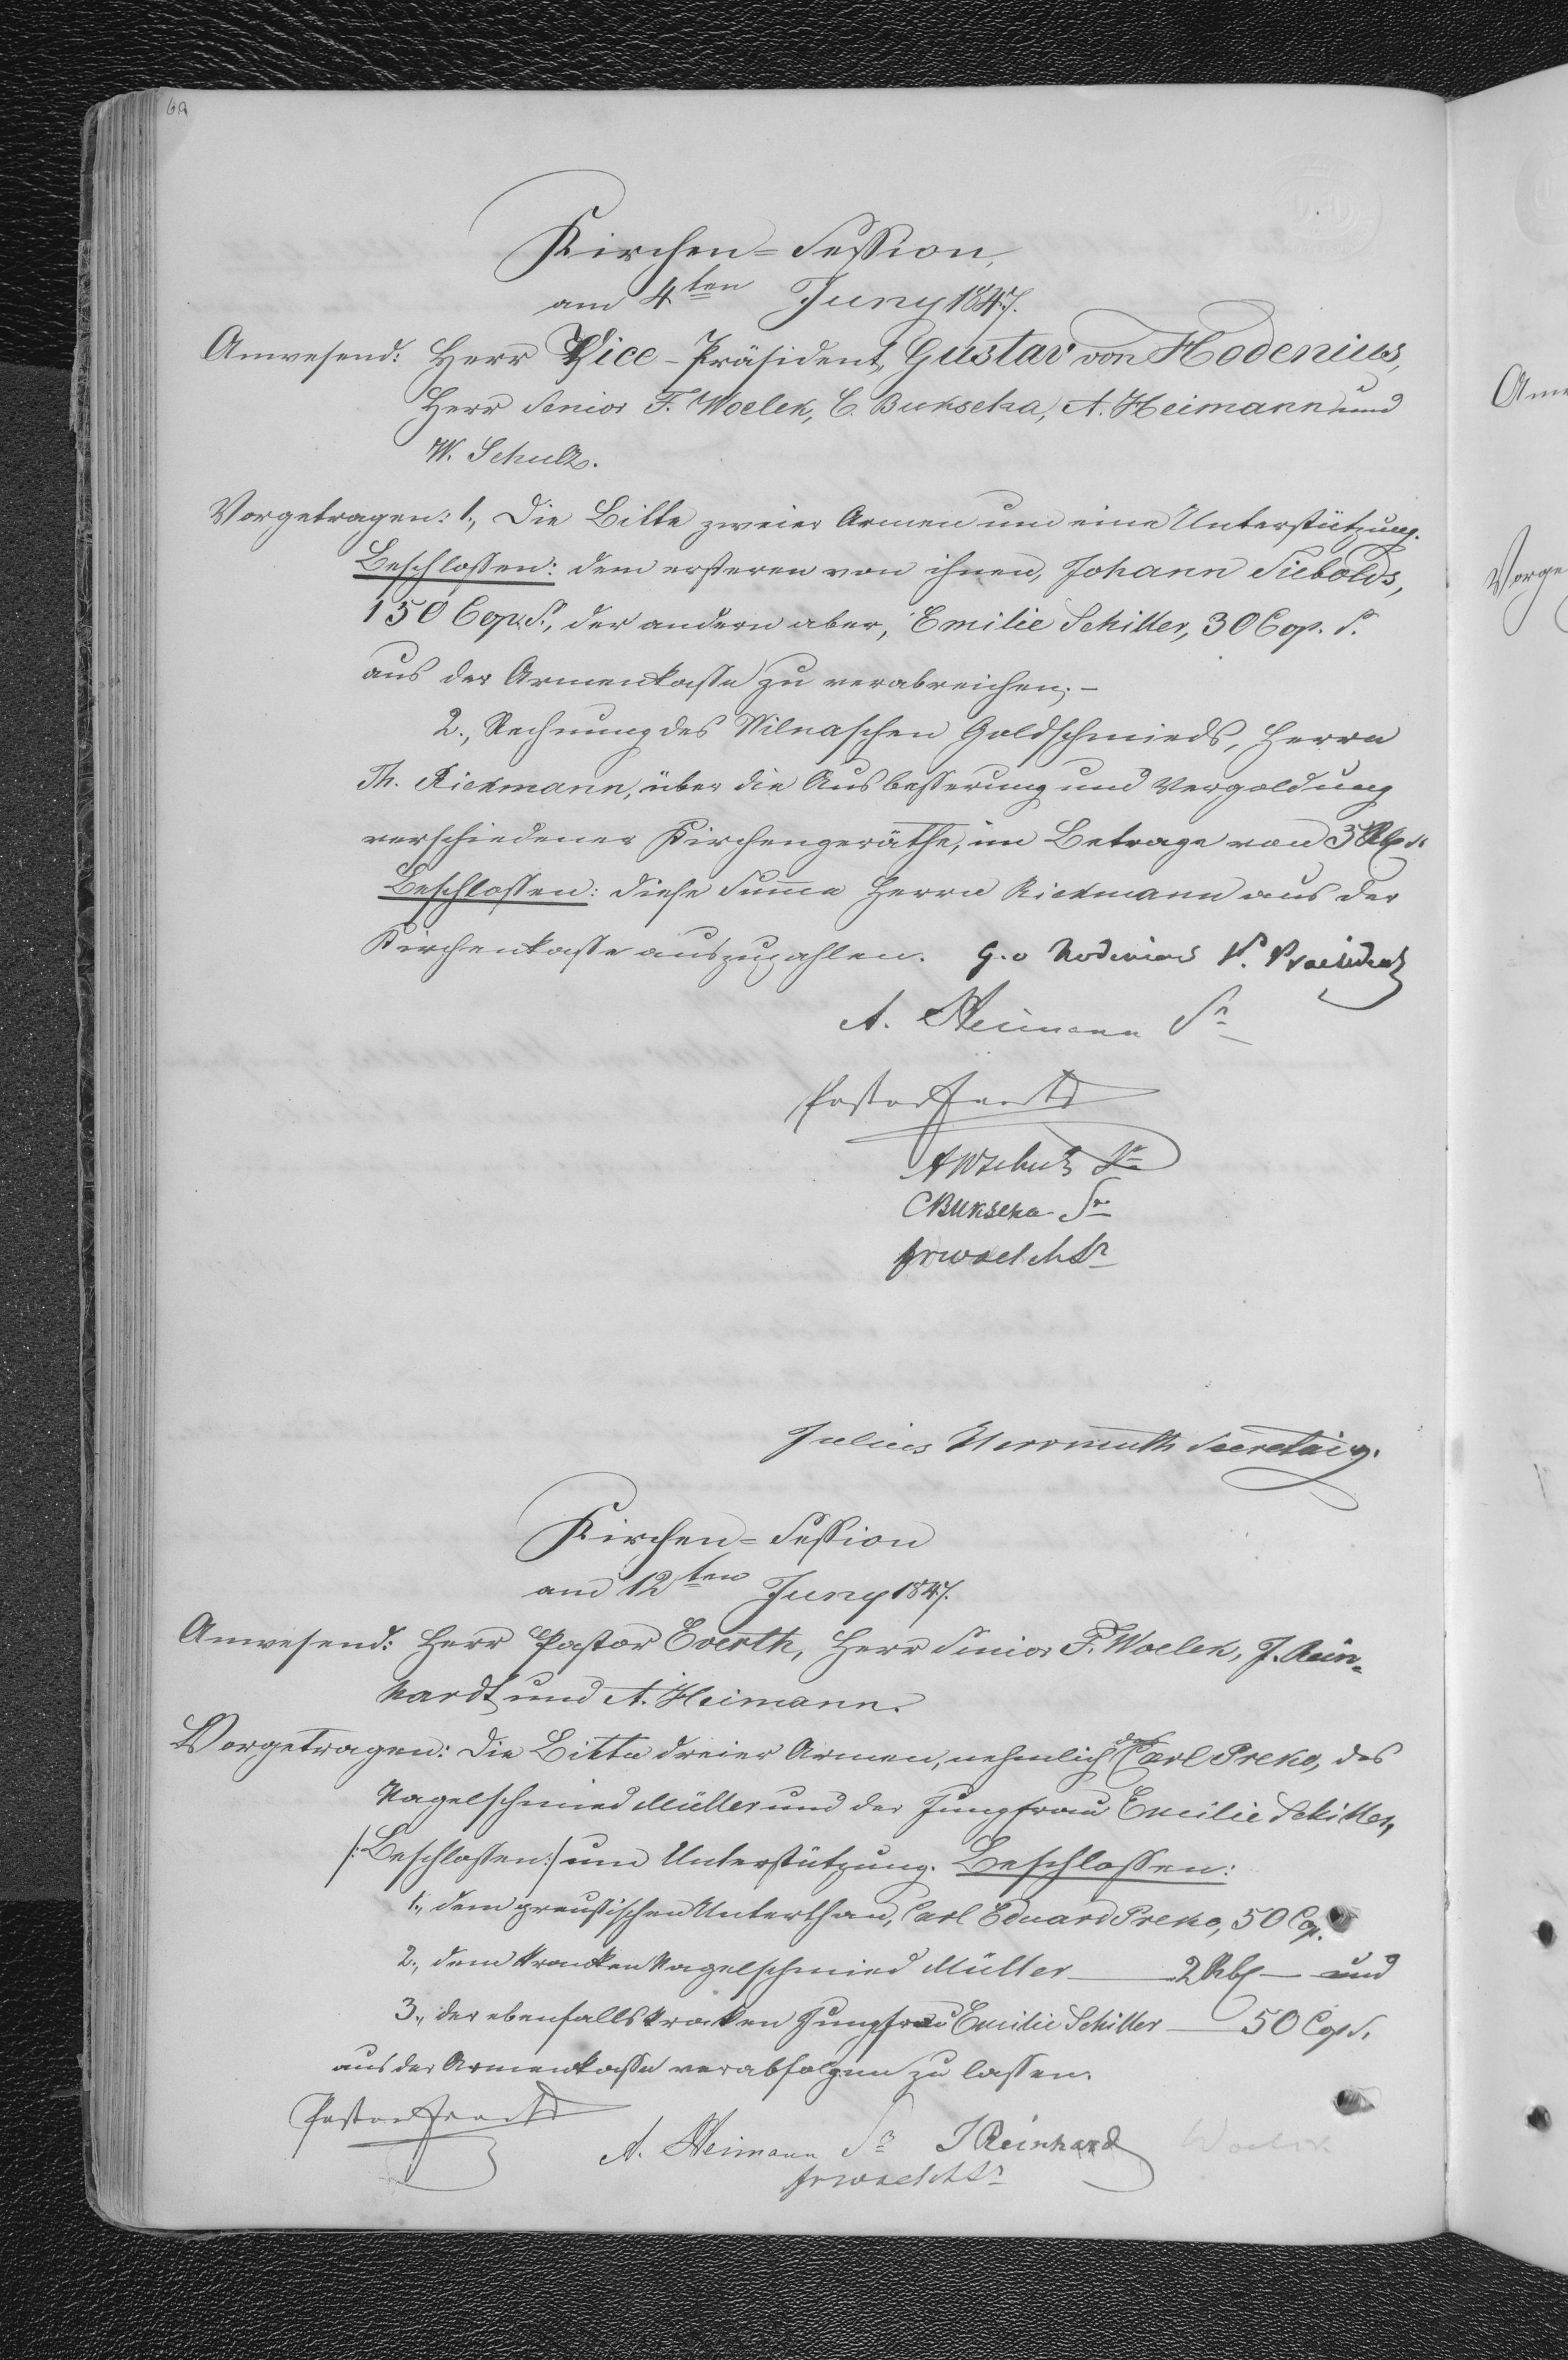 Kirchen-Session,
am 4ten Juny 1847.
Anwesend: Herr Vice-Präsident, Gustav von Hodenius,
Herr Senior F. Woelck, C. Bukscha, A. Heimann und
W. Schulz.
Vorgetragen: 1., Die Bitte zweier Armen um eine Unterstützung.
Beschlossen: dem ersteren von ihnen, Johann Siebolds,
150 Cop. S., der andern aber, Emilie Schiller, 30 Cop. S.
aus der Armenkasse zu verabreichen. –
2., Rechnung des Wilnaschen Goldschmieds, Herrn
Th. Rickmann, über die Ausbesserung und Vergoldung
verschiedener Kirchengeräthe, im Betrage von
Beschlossen: diese Summa Herrn Rickmann aus der
Kirchenkasse auszuzahlen. G. v Hodenius V. Praesident
A. Heimann Sr
Pastor Everth
AWSchulz Sr
CBukscha Sr
FrWoelck Sr
Julius Herrmuth Secretair.
Kirchen-Session
am 12ten Juny 1847.
Anwesend: Herr Pastor Everth, Herr Senior F. Woelck, J. Rein-
hardt und A. Heimann.
Vorgetragen: Die Bitte dreier Armen, nehmlich des Carl Preko, des
Nagelschmied Müller und der Jungfrau Emilie Schiller,
/:Beschlossen:/ um Unterstützung. Beschlossen:
1., dem preussischen Unterthan, Carl Eduard Preko, 50 Cop.
2., dem kranken Nagelschmied Müller — 2 Rbl — und
3., der ebenfalls kranken Jungfrau Emilie Schiller — 50 Cop S.
aus der Armenkasse verabfolgen zu lassen.
Pastor Everth
A. Heimann Sr J Reinhard Woelck
FrWoelck Sr